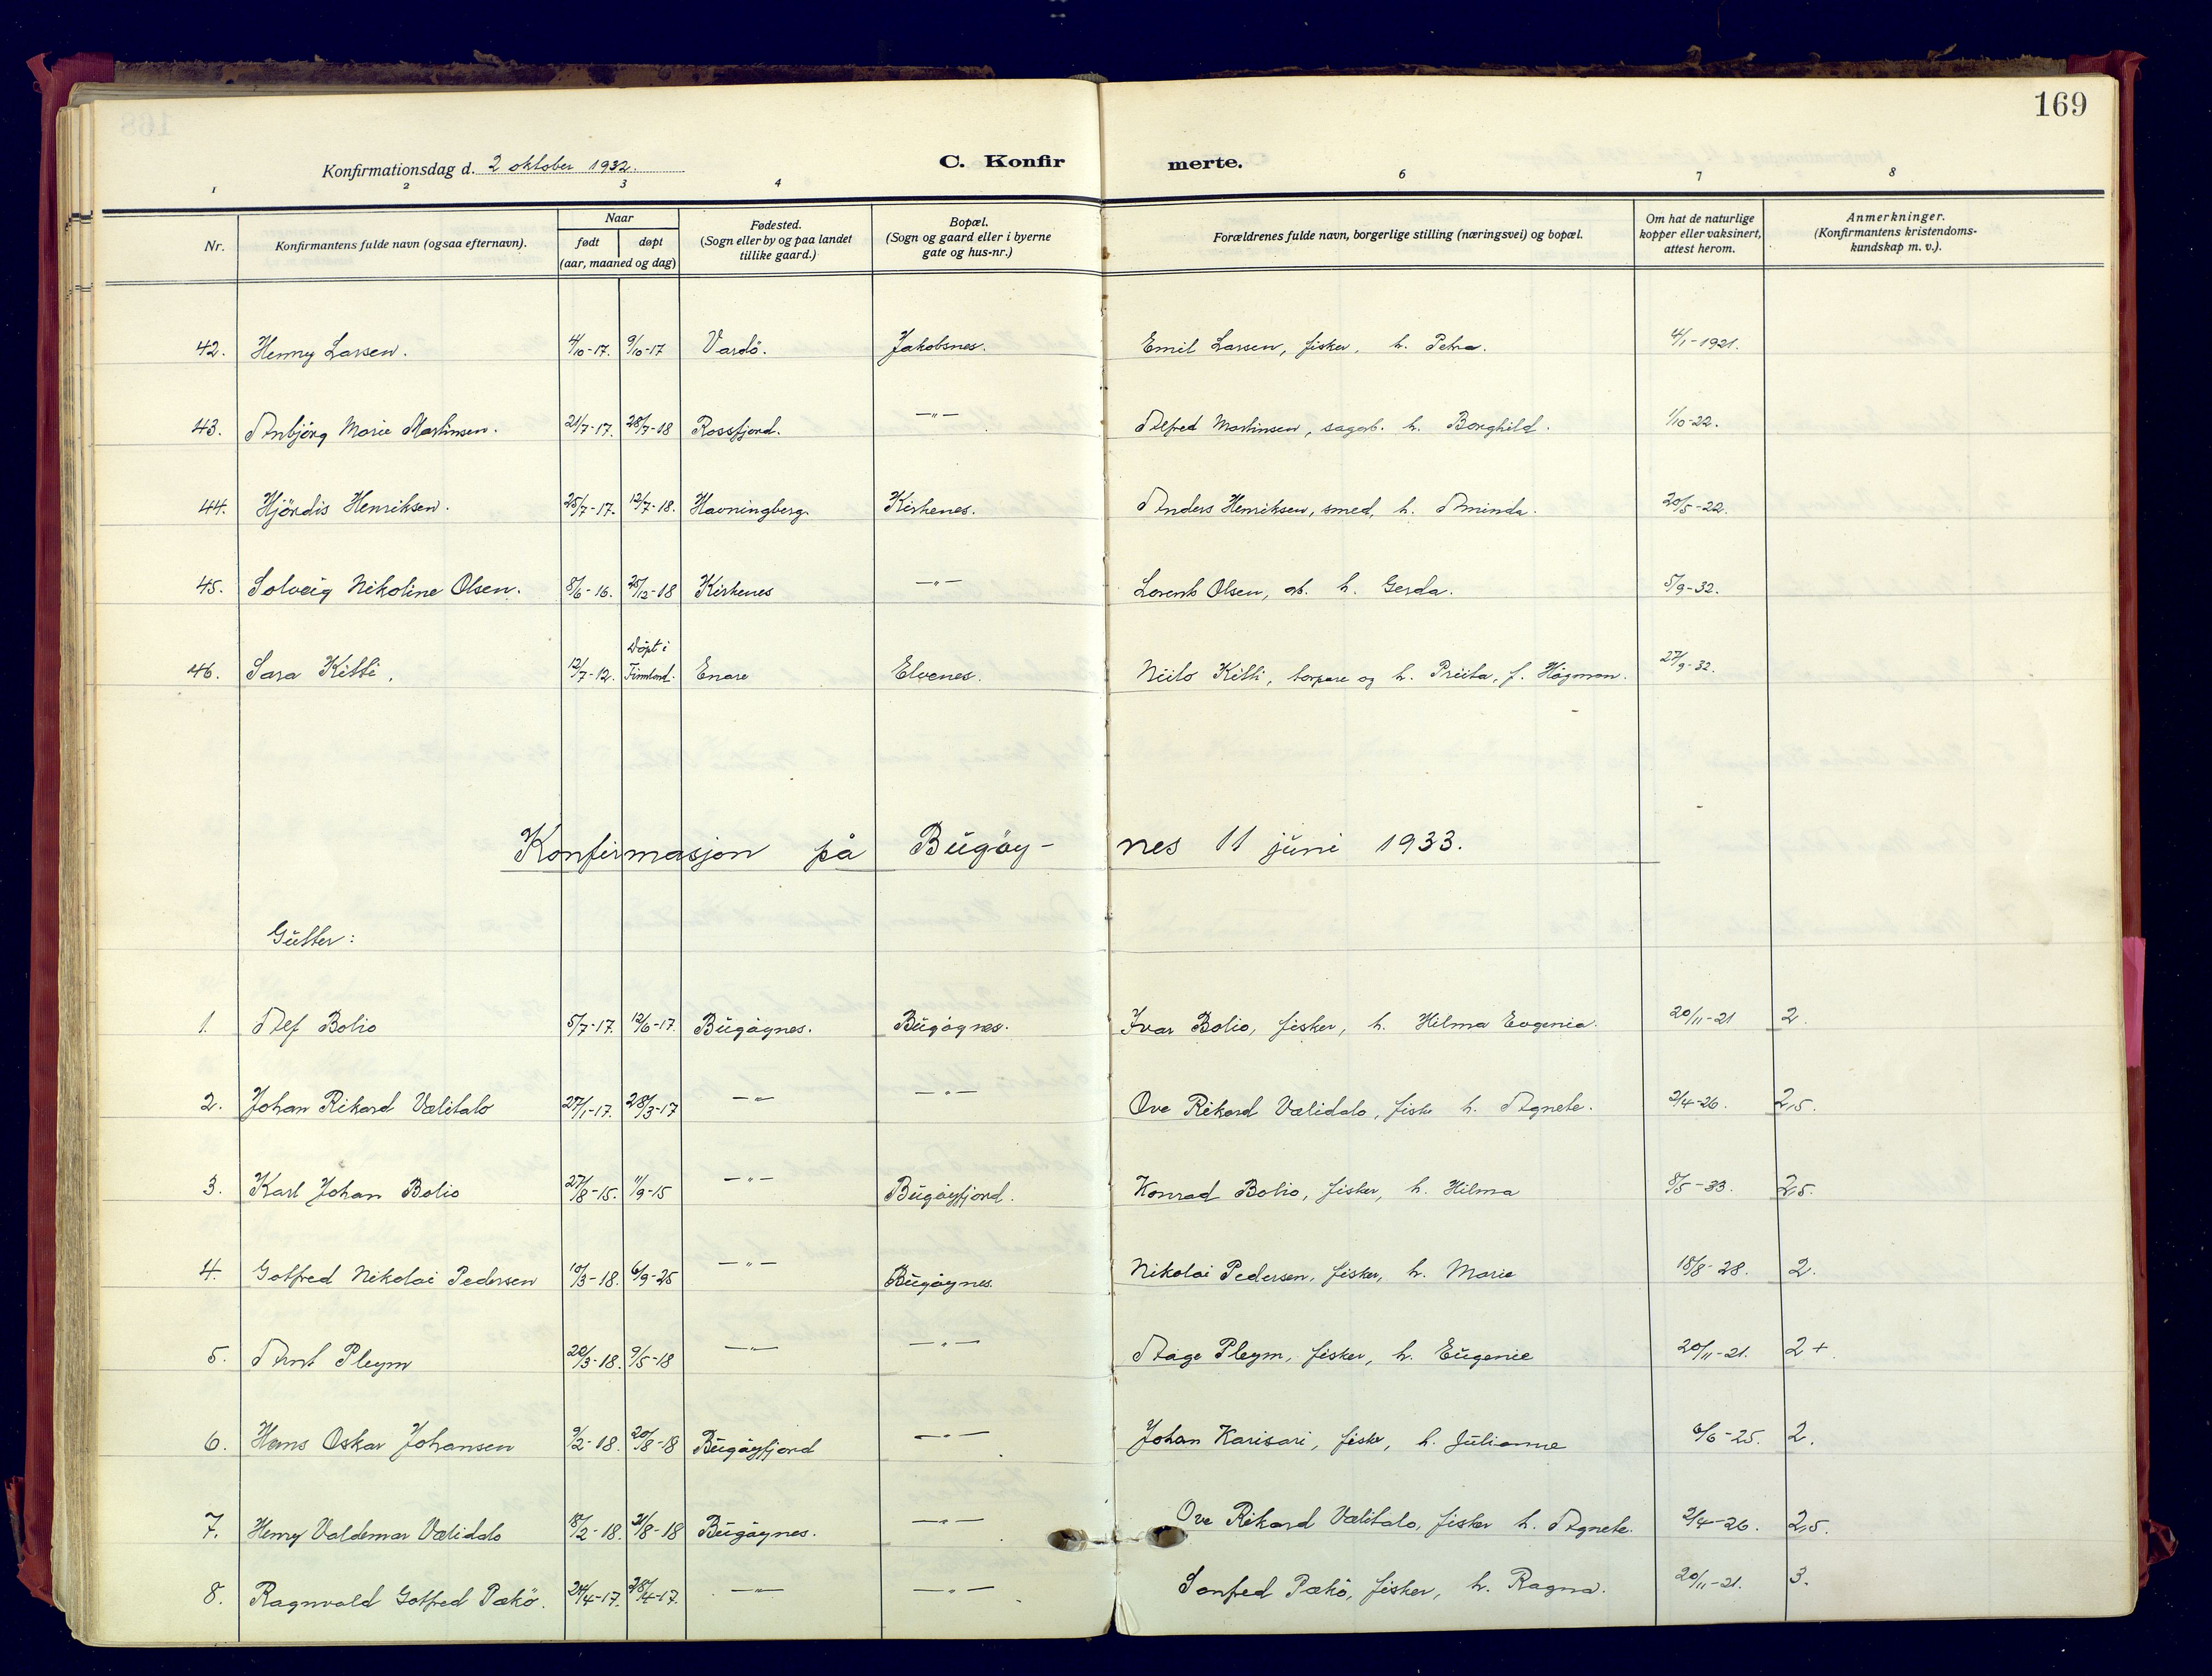 169
Konfirmationsdag d. 2 oktober 1932.
C. Konfirmerte.
1 2 3 4 6 7 8
Nr.
Konfirmantens fulde navn (ogsaa efternavn).
Naar
født døpt
(aar, maaned og dag)
Fødested.
(Sogn eller by og paa landet
tillike gaard.)
Bopæl.
(Sogn og gaard eller i byerne
gate og hus-nr.)
Forældrenes fulde navn, borgerlige stilling (næringsvei) og bopæl.
Om hat de naturlige
kopper eller vaksinert,
attest herom.
Anmerkninger.
(Konfirmantens kristendoms-
kundskap m. v.).
42. Henny Larsen. 4/10-17. 9/10-17 Vardö. Jakobsnes. Emil Larsen, fisker, h. Petra. 4/1-1921.
43. Anbjörg Marie Martinsen. 21/7-17. 28/7-18 Rossfjord. —"— Alfred Martinsen, sagarb. h. Borghild. 1/10-22.
44. Hjördis Henriksen. 25/7-17. 12/7-18. Havningberg. Kirkenes. Anders Henriksen, smed, h. Aminda. 20/5-22.
45. Solveig Nikoline Olsen. 8/6-16. 25/12-18 Kirkenes —"— Lorents Olsen, arb. h. Gerda. 5/9-32.
46. Sara Kitti. 12/7-12. Döpt i Finnland. Enare Elvenes. Niilo Kitti, torpare og h. Priita, f. Högman. 27/9-32.
Konfirmasjon på Bugöynes 11 juni 1933.
Gutter:
1. Alf Bolio 5/7-17. 12/6-17. Bugöynes. Bugöynes. Ivar Bolio, fisker, h. Hilma Eugenia. 20/11-21 2.
2. Johan Rikard Valitalo 27/1-17. 28/3-17 —"— —"— Ove Rikard Validalo, fisker h. Agnete. 2/4-26. 2,5.
3. Karl Johan Bolio 27/8-15. 11/9-15 —"— Bugöyfjord. Konrad Bolio, fisker, h. Hilma 8/5-33. 2,5.
4. Gotfred Nikolai Pedersen 10/3-18. 6/9-25 —"— Bugöynes. Nikolai Pedersen, fisker, h. Marie 18/8-28. 2.
5. Arnt Pleym 20/3-18. 9/5-18 —"— —"— Aage Pleym, fisker, h. Eugenie 20/11-21. 2+.
6. Hans Oskar Johansen 9/2-18. 20/8-18 Bugöyfjord —"— Johan Karisari, fisker, h. Julianne 6/6-25. 2.
7. Henry Valdemar Validalo 18/2-18. 21/8-18 Bugöynes. —"— Ove Rikard Valitalo, fisker h. Agnete. 2/4-26. 2,5.
8. Ragnvald Gotfred Pækö. 24/4-17. 28/4-17. —"— —"— Sanfred Pækö, fisker, h. Ragna. 20/11-21. 3.